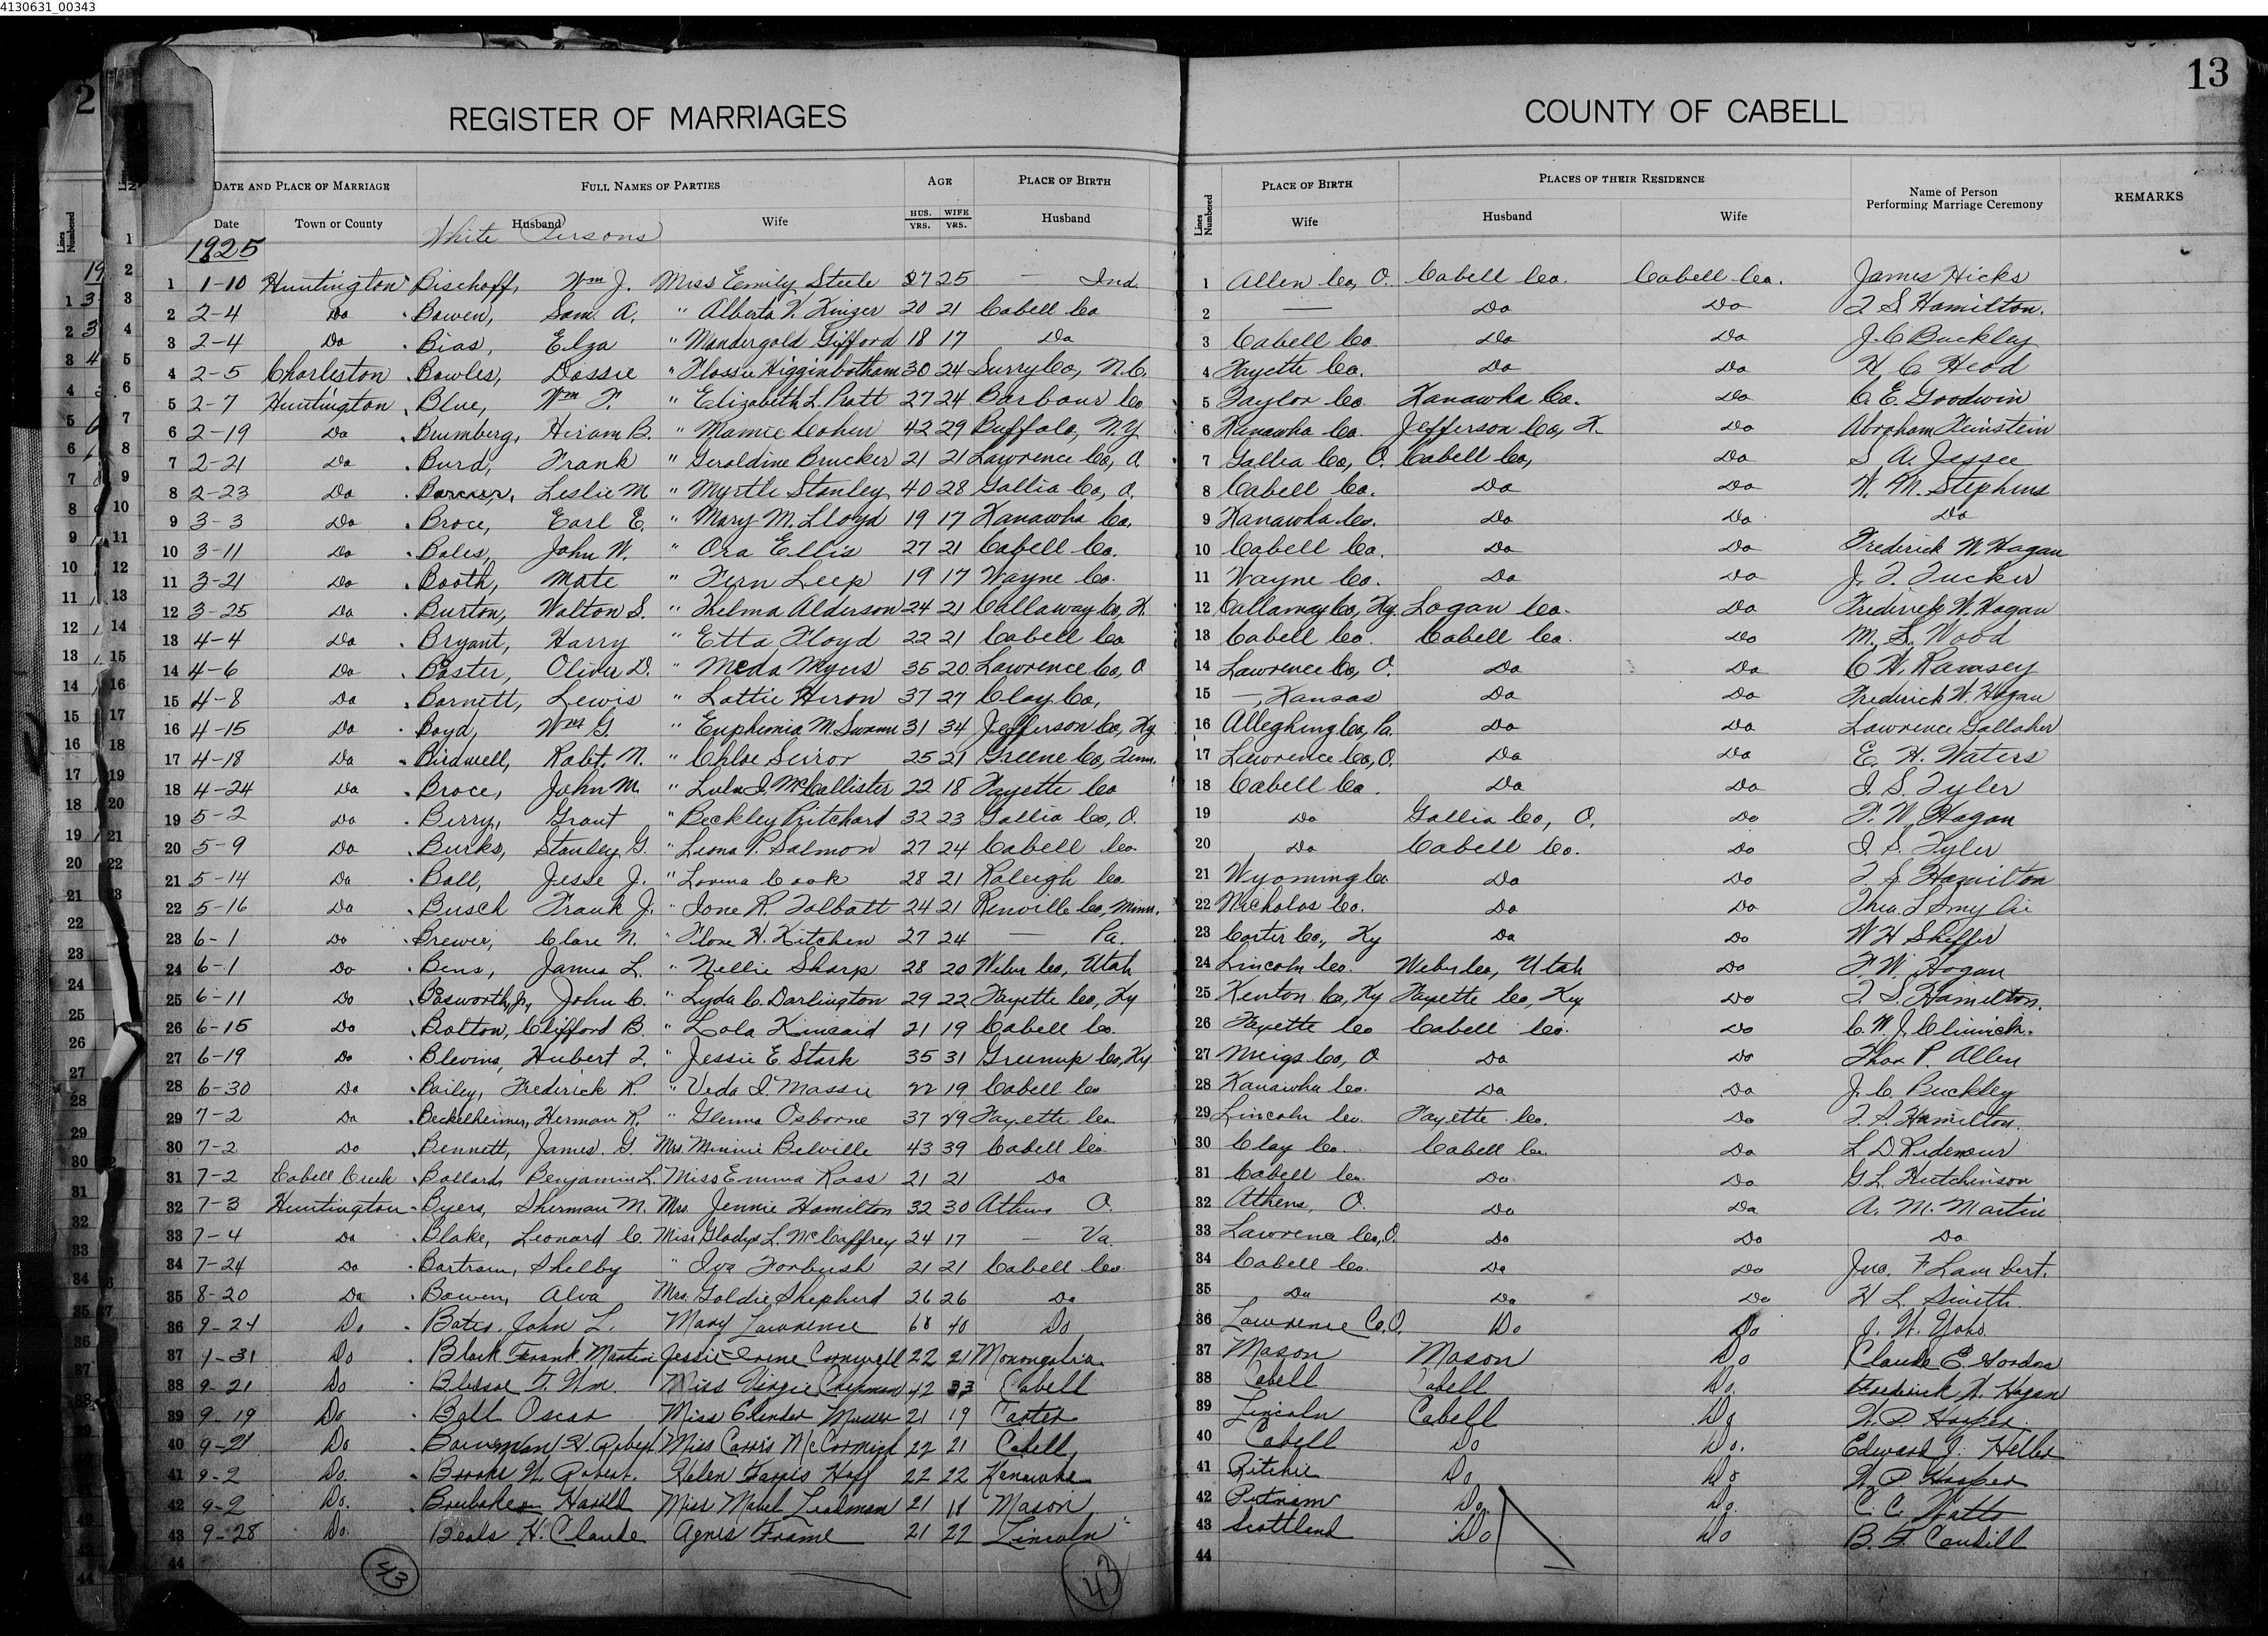 4130631_00343
2
13
REGISTER OF MARRIAGES COUNTY OF CABELL
DATE AND PLACE OF MARRIAGE FULL NAMES OF PARTIES AGE PLACE OF BIRTH Lines Numbered PLACE OF BIRTH PLACES OF THEIR RESIDENCE Name of Person Performing Marriage Ceremony REMARKS
Date Town or County Husband Wife HUS. YRS. WIFE YRS. Husband Wife Husband Wife
1925 White Persons
1 1-10 Huntington Bischoff, Wm J. Miss Emily Steele 37 25 — Ind. 1 Allen Co, O. Cabell Co. Cabell Co. James Hicks
2 2-4 Do Bowen, Sam. A. " Alberta V. Kinzer 20 21 Cabell Co 2 — Do Do T. S. Hamilton.
3 2-4 Do Bias, Elza " Mandergold Gifford 18 17 Do 3 Cabell Co. Do Do J. C. Buckley
4 2-5 Charleston Bowles, Dossie " Flossie Higginbotham 30 24 Surry Co, N.C. 4 Fayette Co. Do Do H. C. Head
5 2-7 Huntington Blue, Wm F. " Elizabeth L. Pratt 27 24 Barbour Co 5 Taylor Co. Kanawha Co. Do C. E. Goodwin
6 2-19 Do Brumberg, Hiram B. " Mamie Cohen 42 29 Buffalo, N.Y. 6 Kanawha Co. Jefferson Co, K. Do Abraham Feinstein
7 2-21 Do Burd, Frank " Geraldine Brucker 21 21 Lawrence Co, O. 7 Gallia Co, O. Cabell Co, Do S. A. Jessee
8 2-23 Do Leslie M " Myrtle Stanley 40 28 Gallia Co, O. 8 Cabell Co. Do Do W. M. Stephens
9 3-3 Do Broce, Earl E. " Mary M. Lloyd 19 17 Kanawha Co. 9 Kanawha Co. Do Do Do
10 3-11 Do Bales, John W. " Ora Ellis 27 21 Cabell Co. 10 Cabell Co. Do Do Frederick W. Hagan
11 3-21 Do Booth, Mate " Fern Leep 19 17 Wayne Co. 11 Wayne Co. Do Do J. T. Tucker
12 3-25 Do Burton, Walton S. " Thelma Alderson 24 21 Callaway Co, K. 12 Callaway Co, Ky. Logan Co. Do Frederick W. Hagan
13 4-4 Do Bryant, Harry " Etta Floyd 22 21 Cabell Co 13 Cabell Co. Cabell Co. Do M. S. Wood
14 4-6 Do Baster, Oliver D. " Meda Myers 35 20 Lawrence Co, O 14 Lawrence Co, O. Do Do C. W. Ramsey
15 4-8 Do Barnett, Lewis " Lottie Heron 37 27 Clay Co, 15 —, Kansas Do Do Frederick W. Hagan
16 4-15 Do Boyd, Wm G. " Euphemia M. Swann 31 34 Jefferson Co, Ky 16 Allegheny Co, Pa. Do Do Lawrence Gallaher
17 4-18 Do Birdwell, Robt. N. " Chloe 25 21 Greene Co, Tenn. 17 Lawrence Co, O. Do Do E. H. Waters
18 4-24 Do Broce, John M. " Lulu I. McCallister 22 18 Fayette Co 18 Cabell Co. Do Do I. S. Tyler
19 5-2 Do Berry, Grant " Beckley Pritchard 32 23 Gallia Co, O. 19 Do Gallia Co, O. Do F. W. Hagan
20 5-9 Do Burks, Stanley G. " Leona P. Salmon 27 24 Cabell Co. 20 Do Cabell Co. Do I. S. Tyler
21 5-14 Do Ball, Jesse J. " Lovena Cook 28 21 Raleigh Co. 21 Wyoming Co Do Do T. S. Hamilton
22 5-16 Do Busch Frank J. " Ione R. Talbott 24 21 Renville Co, Minn. 22 Nicholas Co. Do Do Smylie
23 6-1 Do Brewer, Clare N. " Flora H. Kitchen 27 24 — Pa. 23 Carter Co., Ky Do Do W H Sheffer
24 6-1 Do Bens, James L. " Nellie Sharp 28 20 Weber Co, Utah 24 Lincoln Co. Weber Co, Utah Do F. W. Hagan
25 6-11 Do Bosworth, Jr, John C. " Lyda C. Darlington 29 22 Fayette Co, Ky 25 Kenton Co, Ky Fayette Co, Ky Do T. S. Hamilton.
26 6-15 Do Bolton, Clifford B " Lola Kincaid 21 19 Cabell Co. 26 Fayette Co Cabell Co. Do C. W. J.
27 6-19 Do Blevins, Hubert T. " Jessie E. Stark 35 31 Greenup Co, Ky 27 Meigs Co, O Do Do Thos P. Allen
28 6-30 Do Bailey, Frederick R. " Veda I. Massie 22 19 Cabell Co 28 Kanawha Co. Do Do J. C. Buckley
29 7-2 Do Beckelheimer, Herman R. " Glenna Osborne 37 29 Fayette Co. 29 Lincoln Co. Fayette Co. Do T. S. Hamilton.
30 7-2 Do Bennett, James G. Mrs. Minnie Belville 43 39 Cabell Co. 30 Clay Co. Cabell Co. Do L D. Ridenour
31 7-2 Cabell Creek Ballard, Benjamin L. Miss Emma Ross 21 21 Do 31 Cabell Co. Do Do G. L. Hutchinson
32 7-3 Huntington Byers, Sherman M. Mrs. Jennie Hamilton 32 30 Athens O. 32 Athens, O. Do Do A. M. Martin
33 7-4 Do Blake, Leonard C. Miss Gladys L. McCaffrey 24 17 — Va. 33 Lawrence Co, O. Do Do Do
34 7-24 Do Bartram, Shelby " Iva Forbush 21 21 Cabell Co. 34 Cabell Co. Do Do Jno. F Lambert.
35 8-20 Do Bowen, Alva Mrs. Goldie Shepherd 26 26 Do 35 Do Do Do H L. Smith.
36 9-24 Do Bates, John L. Mary Lawrence 68 40 Do 36 Lawrence Co. O. Do Do J. W. Yoho
37 1-31 Do Black Frank Martin Jessie Irene Cornwell 22 21 Monongalia 37 Mason Mason Do Claude E. Gordon
38 9-21 Do Bledsoe T. Wm. Miss Virgie Chapman 42 33 Cabell 38 Cabell Cabell Do. Frederick W. Hagan
39 9-19 Do Ball Oscar Miss 21 19 Carter 39 Lincoln Cabell Do
40 9-21 Do Bowman H. Robert Miss McCormick 22 21 Cabell 40 Cabell Do Do. Edward J.
41 9-2 Do. Brooke W. Robert. Helen Farris Hoff 22 22 Kanawha 41 Ritchie Do Do
42 9-2 Do. Brubaker Harold Miss Mabel 21 18 Mason 42 Putnam Do. Do. C. C. Watts
43 9-28 Do. Beals H. Claude Agnes Frame 21 22 Lincoln 43 Scottland Do Do B. F. Caudill
44 44
43 43